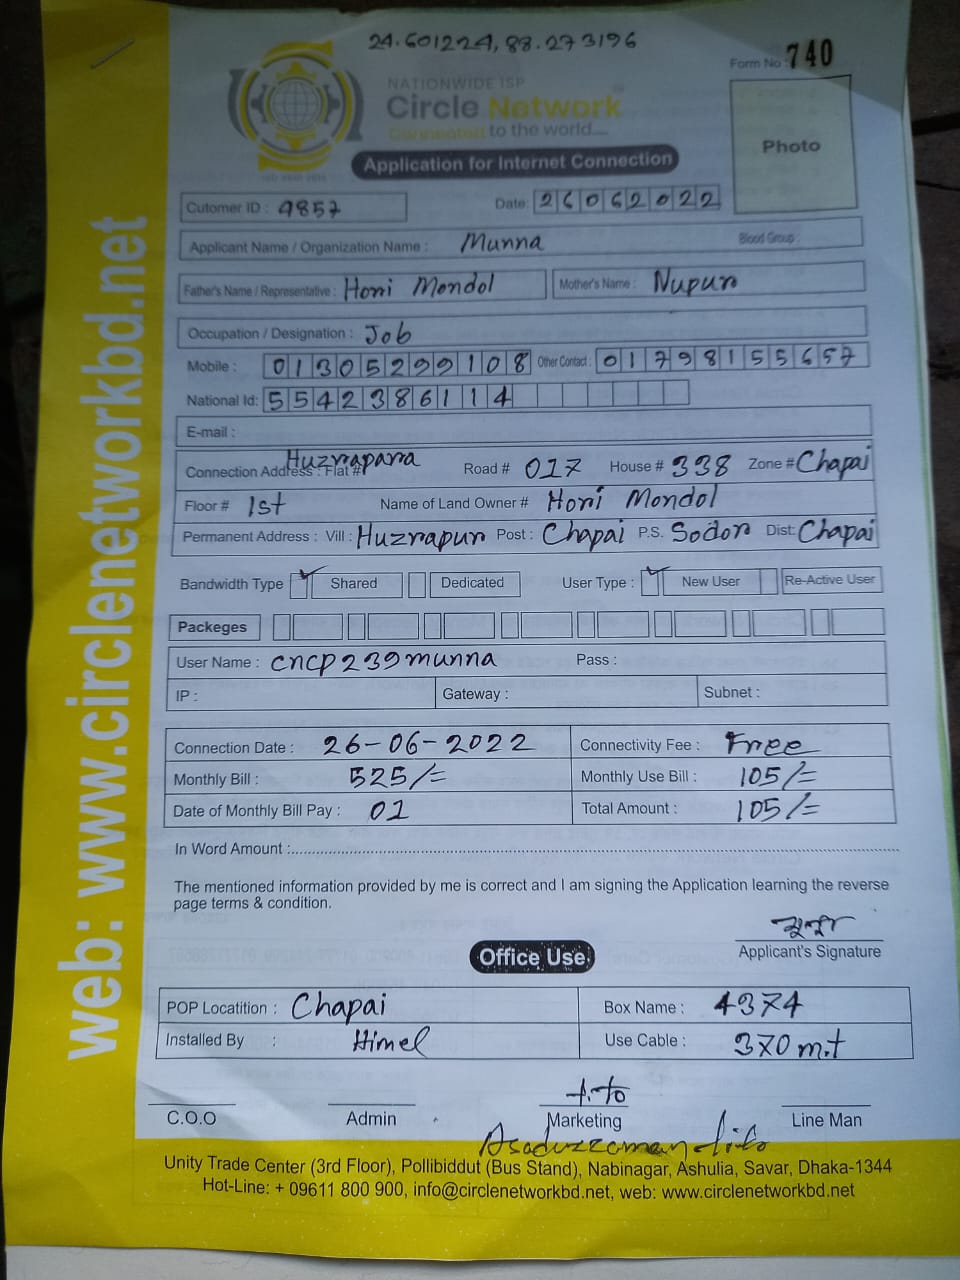 24.601224, 88.273196
Form No : 740
NATIONWIDE ISP
Circle Network
Connected to the world....
Photo
Application for Internet Connection
Cutomer ID : 9857 Date: 26062022
Applicant Name / Organization Name : Munna Blood Group :
Father's Name / Representative : Hori Mondol Mother's Name : Nupur
Occupation / Designation : Job
Mobile : 01305299108 Other Contact : 01798155657
National Id: 5542386114
E-mail :
Connection Address : Flat # Huzrapara Road # 017 House # 338 Zone # Chapai
Floor # 1st Name of Land Owner # Hori Mondol
Permanent Address : Vill : Huzrapur Post : Chapai P.S. Sodor Dist: Chapai
Bandwidth Type ✓ Shared Dedicated User Type : ✓ New User Re-Active User
Packeges
User Name : cncp239munna Pass :
IP : Gateway : Subnet :
Connection Date : 26-06-2022 Connectivity Fee : Free
Monthly Bill : 525/= Monthly Use Bill : 105/=
Date of Monthly Bill Pay : 01 Total Amount : 105/=
In Word Amount :
The mentioned information provided by me is correct and I am signing the Application learning the reverse
page terms & condition.
মুন্না
Applicant's Signature
Office Use
POP Locatition : Chapai Box Name : 4374
Installed By : Himel Use Cable : 370 m.t
C.O.O Admin Marketing Line Man
Asaduzzaman
Unity Trade Center (3rd Floor), Pollibiddut (Bus Stand), Nabinagar, Ashulia, Savar, Dhaka-1344
Hot-Line: + 09611 800 900, info@circlenetworkbd.net, web: www.circlenetworkbd.net
web: www.circlenetworkbd.net